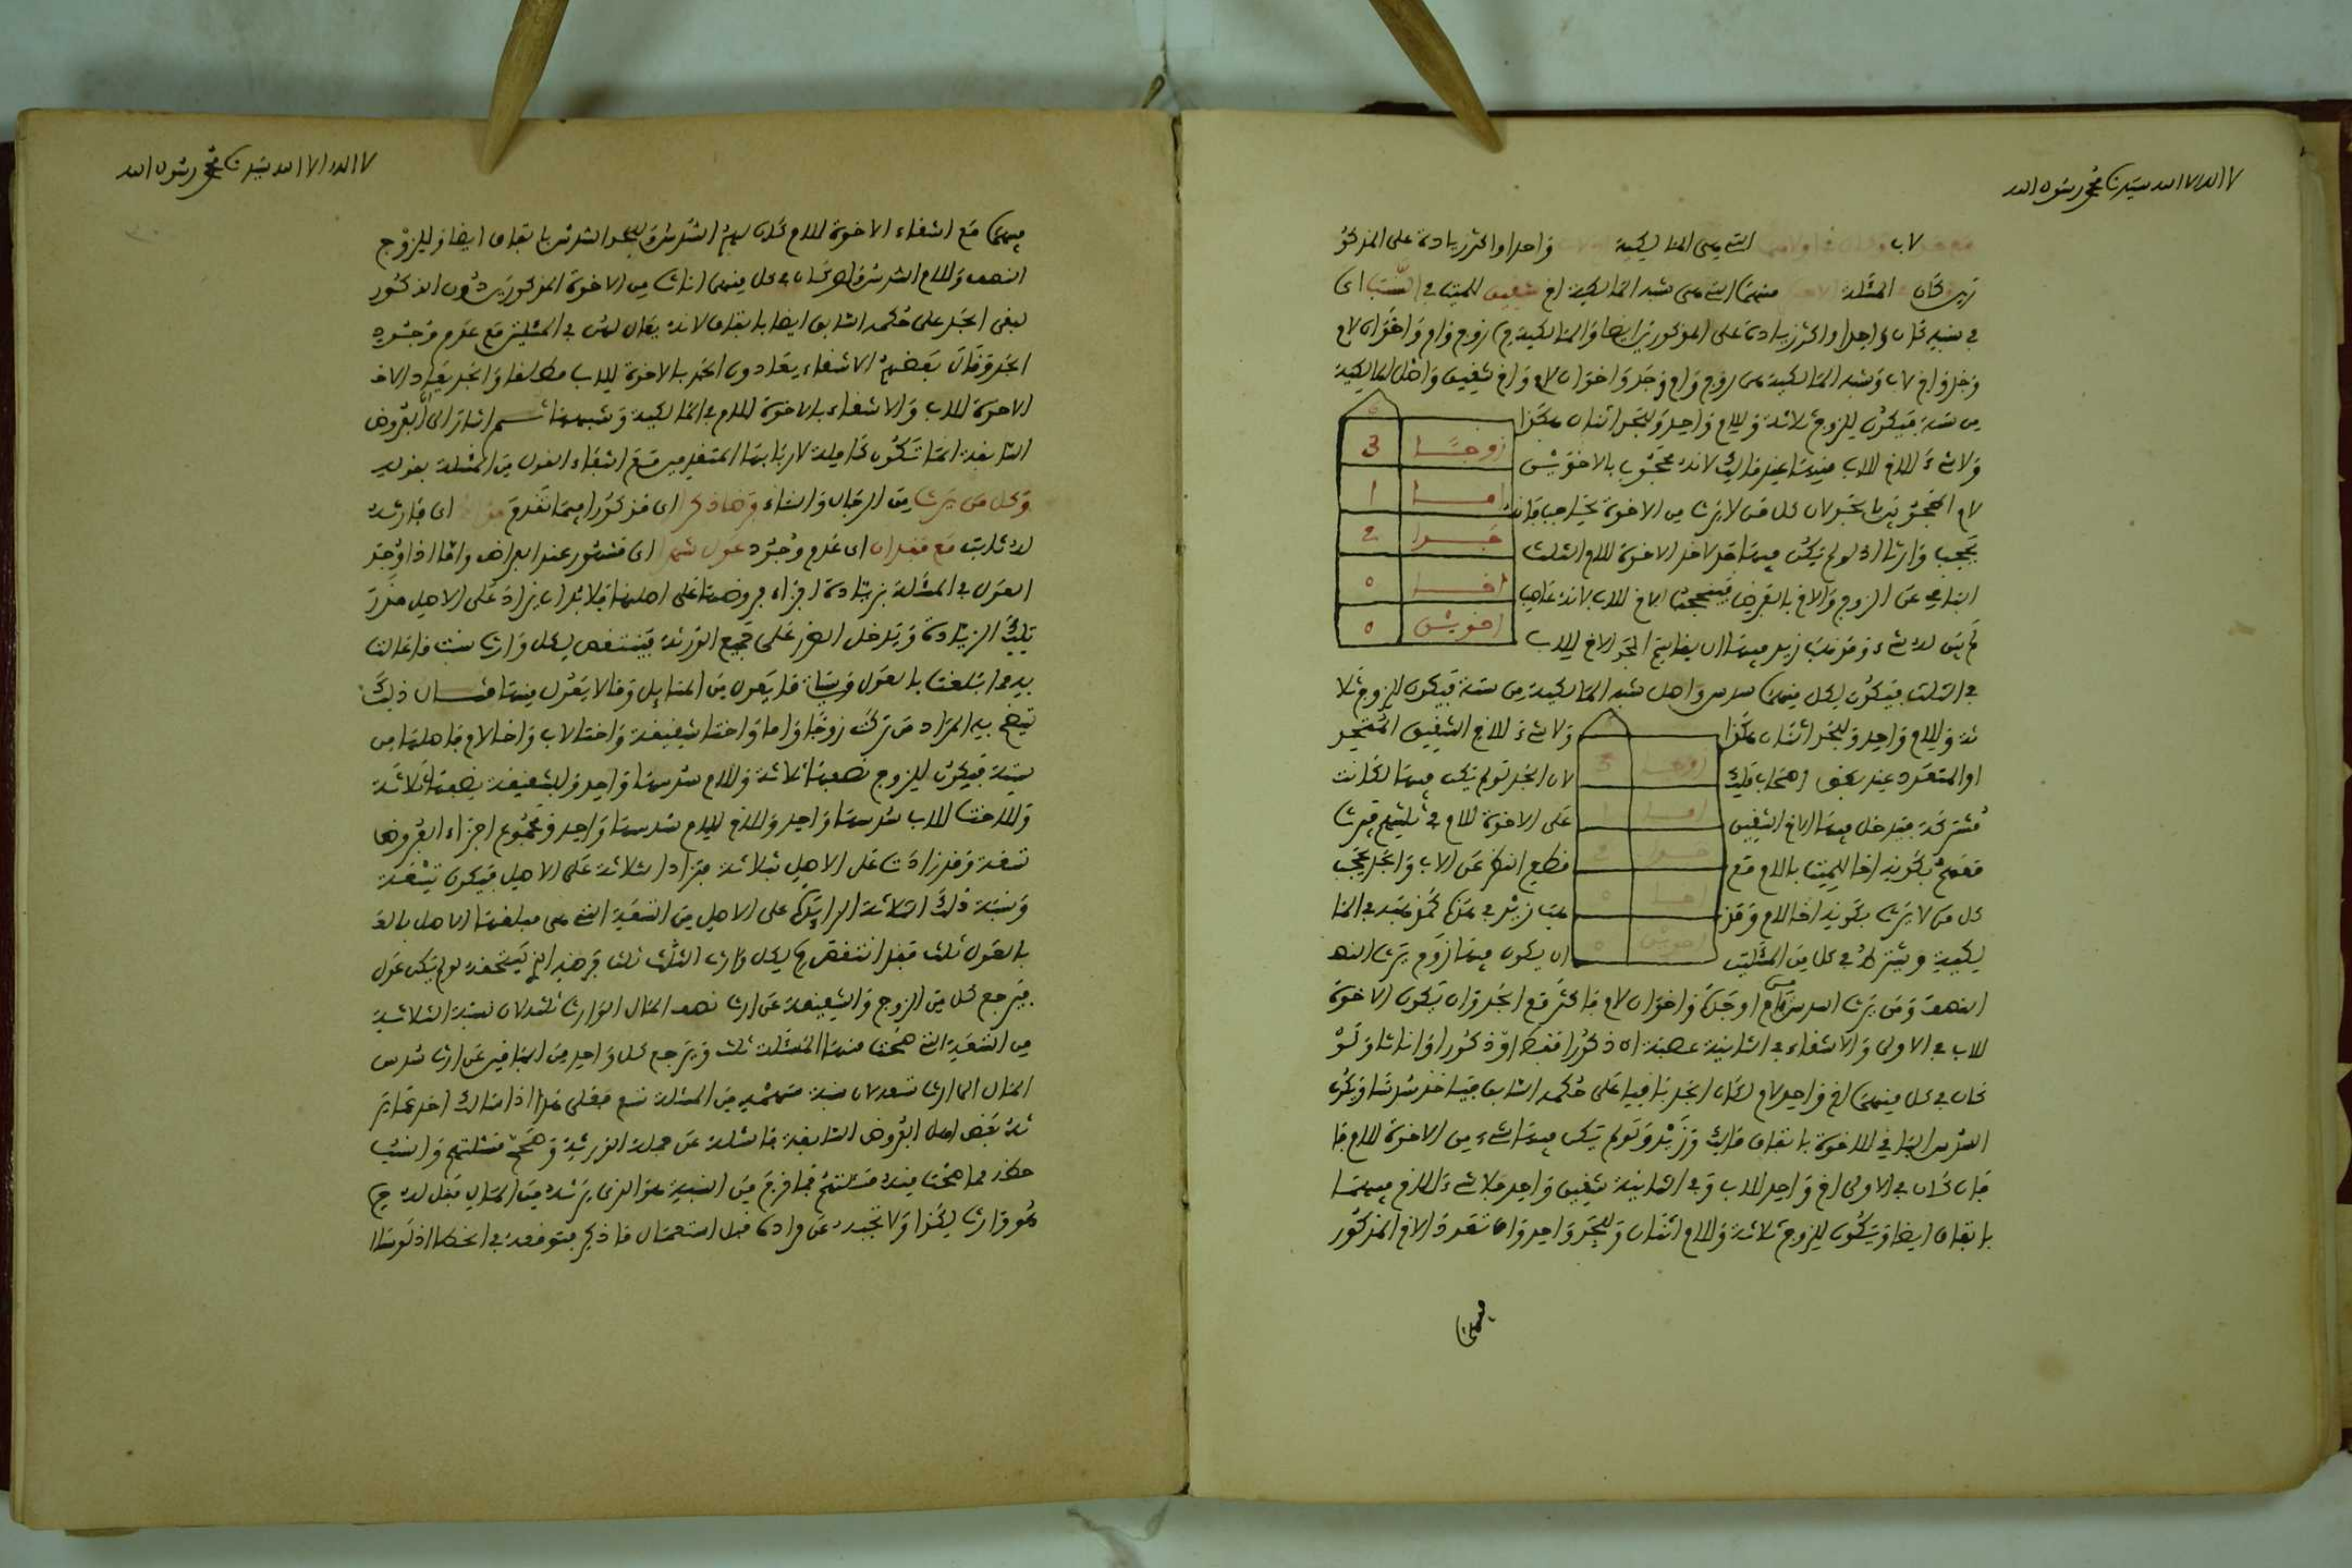 لا اله الا الله سيدنا محمد رسول الله
لاب التي هي المالكية واحدا واكثر زيادة على المذكو
رين كان المسئلة منهما التي هي شبه المالكية اخ شقيق للميت في النسب اى
في شبه كان واحدا او اكثر زيادة على المذكورين ايضا والمالكية زوج وام واخوان لام
وجد واخ لاب وشبه المالكية هي زوج وام وجد واخوان لام واخ شقيق واصل المالكية
من ستة فيكون للزوج ثلاثة وللام واحد وللجد اثنان هكذا
ولا شىء للاخ للاب فيها عند مالك لانه محجوب بالاخوين
لام المحجوبين بالجد لان كل من لا يرث من الاخوة
يحجب وارثا اذ لو لم يكن فيها جد لاخذ الاخوة للام الثلث
الباقي عن الزوج والام بالفرض فيسقط الاخ للاب لانه عاصب
لم يبق له شىء ومذهب زيد فيها ان يقاسم الجد الاخ للاب
زوجــا 3
امــا 1
جــدا 2
اخــا 0
اخوين 0
في الثلث فيكون لكل منهما سدس واصل شبه المالكية من ستة فيكون للزوج ثلا
ثة وللام واحد وللجد اثنان هكذا ولا شىء للاخ الشقيق المتحد
او المتعدد عند بعض اصحاب مالك لان الجد لو لم يكن فيها لكانت
مشتركة فيدخل فيها الاخ الشقيق على الاخوة للام في ثلثهم فيرث
معهم بكونه اخا للميت بالام مع قطع النظر عن الاب والجد يحجب
كل من لا يرث بكونه اخا لام ومذ هب زيد في هذه كمذهبه في الما
لكية ويشترط في كل من المسئلتين ان يكون فيها زوج يرث النصـ
زوجــا 3
امــا 1
جــدا 2
اخــا 0
اخوين 0
النصف ومن يرث السدس من ام او جدة واخوان لام فاكثر مع الجد وان يكون الاخوة
للاب في الاولى والاشقاء في الثانية عصبة ان ذكورا فقط او ذكورا واناثا ولو
كان في كل منهما اخ واحد لام لكان الجد باقيا على حكمه السابق فياخذ سدسا ويكون
السدس الباقي للاخوة باتفاق مالك وزيد ولو لم يكن فيها شىء من الاخوة للام فا
فان كان في الاولى اخ واحد للاب وفي الثانية شقيق واحد فلا شىء للاخ فيهما
باتفاق ايضا ويكون للزوج ثلاثة وللام اثنان وللجد واحد وان تعدد الاخ المذكور
فيهما
لا اله الا الله سيدنا محمد رسول الله
فيهما مع انتفاء الاخوة للام كان لهم السدس وللجد السدس باتفاق ايضا وللزوج
النصف وللام السدس ولو كان في كل منهما اناث من الاخوة المذكورين دون الذكور
لبقى الجد على حكمه السابق ايضا باتفاق لانه يقال لهن في المسئلتين مع عدم وجود
الجد وقال بعضهم الاشقاء يعادون الجد بالاخوة للاب مطلقا والجد يعاد الاخ
الاخوة للاب والاشقاء بالاخوة للام في المالكية وشبهها ثــم اشار الى ان الفروض
السابقة انما تكون كاملة لاربابها المتقدمين مع انتفاء العول من المسئلة بقوله
وكل من يرث من الرجال والنساء فرضا ذكر اى مذكورا فيما تقدم اى فارثه
له ثابت مع فقدان اى عدم وجود عول شهر اى مشهور عند الفراض واما اذا وجد
العول في المسئلة بزيادة اجزاء فروضها على اصلها فلا بد ان يزاد على الاصل قدر
تلك الزيادة ويدخل الضرر على جميع الورثة فينتقص لكل وارث بنسبة ما عالت
به وما بلغت بالعول وبيان ما يعول من المسائل وما لا يعول منها مثــال ذلك
يتضح به المراد من ترك زوجا واما واختا شقيقة واختا لاب واخا لام فاصلها من
ستة فيكون للزوج نصفها ثلاثة وللام سدسها واحد وللشقيقة نصفها ثلاثة
وللاخت للاب سدسها واحد وللاخ للام سدسها واحد ومجموع اجزاء الفروض
تسعة وقد زادت على الاصل بثلاثة فتزاد الثلاثة على الاصل فيكون تسعة
ونسبة ذلك الثلاثة الزائدة على الاصل من التسعة التي هي مبلغها الاصل بالعو
بالعول ثلث فقد انتقص لكل وارث الثلث ثلث فرضه الذي يستحقه لو لم يكن عول
فيرجع كل من الزوج والشقيقة عن ارث نصف المال الوارث ثلثه لان نسبة الثلاثة
من التسعة التي صحت منها المسئلة ثلث ويرجع كل واحد من الباقين عن ارث سدس
المال الى ارث تسعه لان نسبة سهمه من المسئلة تسع فقل هذا اذا سالك احد عما ير
ثه بعض اهل الفروض السابقة فاسئله عن جملة الورثة وصحح مسئلتهم وانسب
حظه مما صحت منه مسئلتهم فما خرج من النسبة هو الذي يرثه من المال فقل له
هو وارث لكذا ولا تجبه عن مراده قبل استعمال ما ذكر فتوقعه في الخطا اذ لو سال